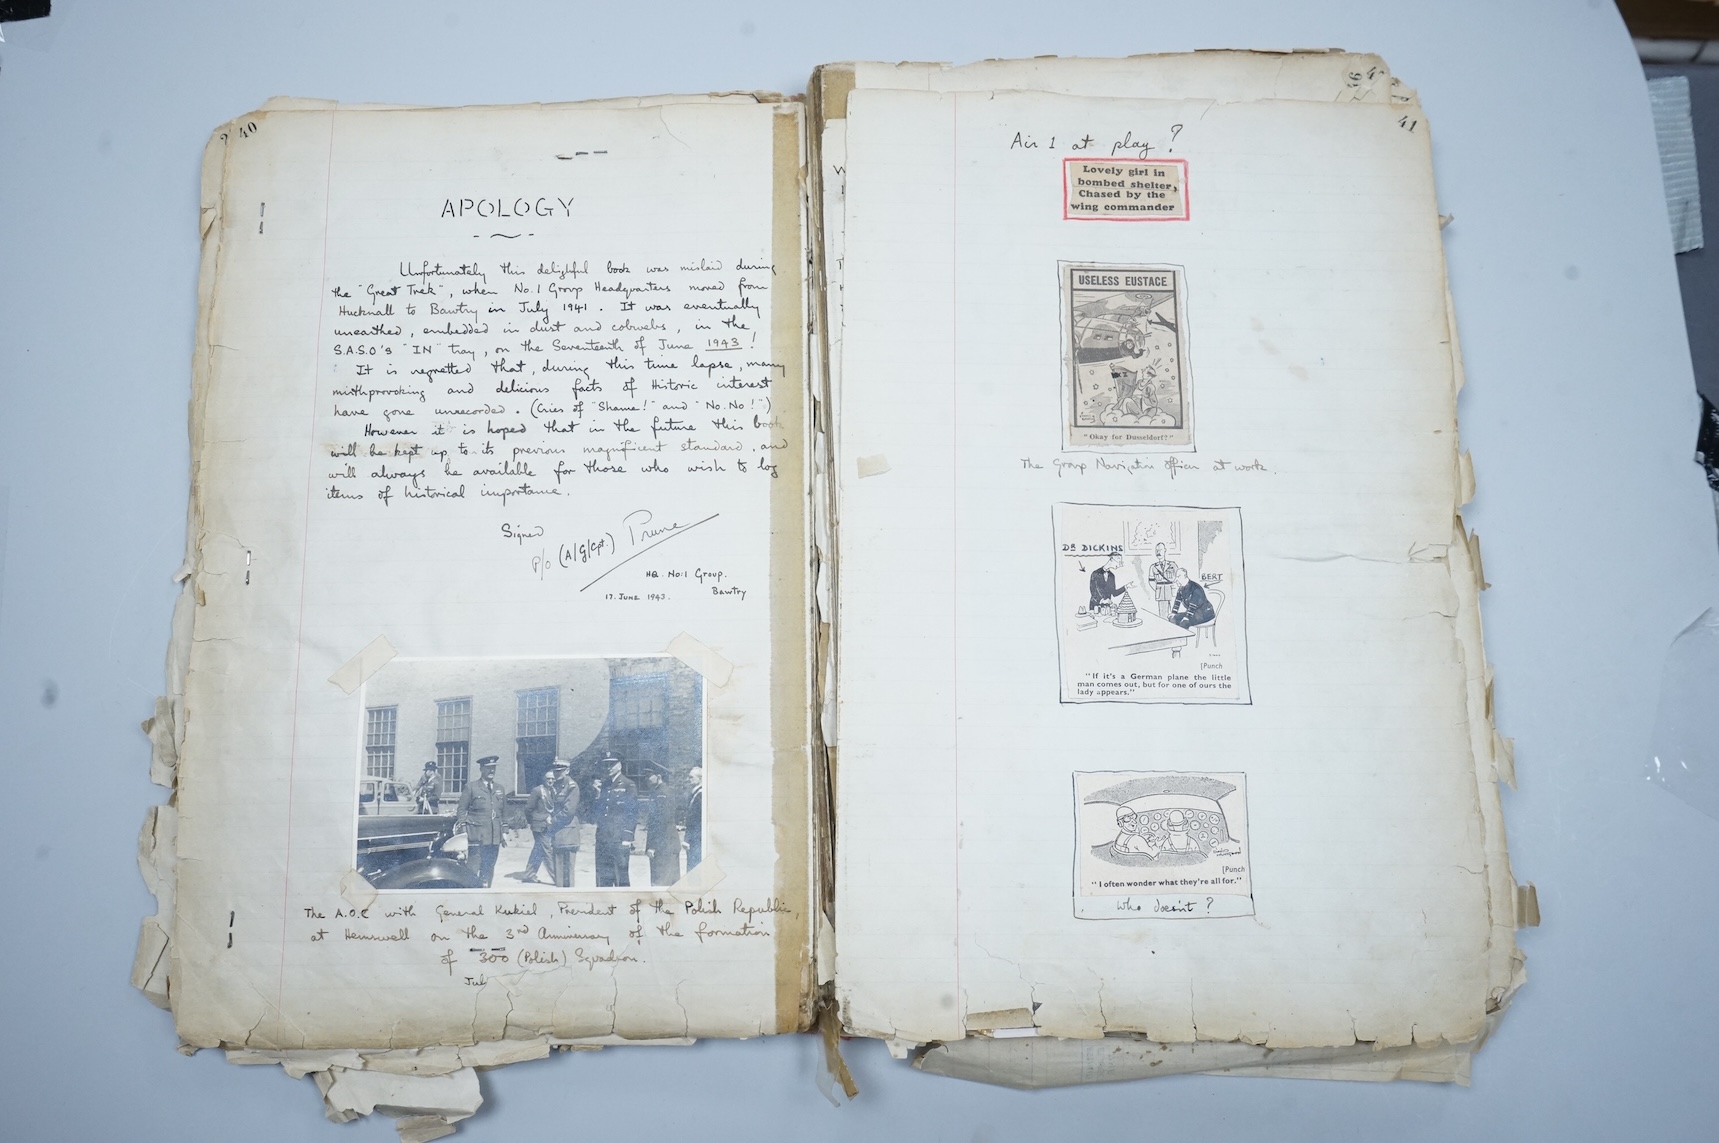 40
APOLOGY
Unfortunately this delightful book was mislaid during
the "Great Trek", when No.1 Group Headquarters moved from
Hucknall to Bawtry in July 1941. It was eventually
unearthed, embedded in dust and cobwebs, in the
S.A.S.O's "IN" tray, on the Seventeenth of June 1943!
It is regretted that, during this time lapse, many
mirthprovoking and delicious facts of Historic interest
have gone unrecorded. (Cries of "Shame!" and "No. No!".)
However it is hoped that in the future this book
will be kept up to its previous magnificent standard, and
will always be available for those who wish to log
items of historical importance.
Signed
P/O (A/G/Cpt.) Prune
HQ. No:1 Group.
Bawtry
17. JUNE 1943.
The A.O.C with General Kukiel, President of the Polish Republic,
at Hemswell on the 3rd Anniversary of the formation
of 300 (Polish) Squadron.
Jul
41
Air 1 at play?
Lovely girl in
bombed shelter,
Chased by the
wing commander
USELESS EUSTACE
"Okay for Dusseldorf?"
The Group Navigation officer at work.
DR DICKINS
BERT
[Punch
"If it's a German plane the little
man comes out, but for one of ours the
lady appears."
[Punch
"I often wonder what they're all for."
Who doesnt?